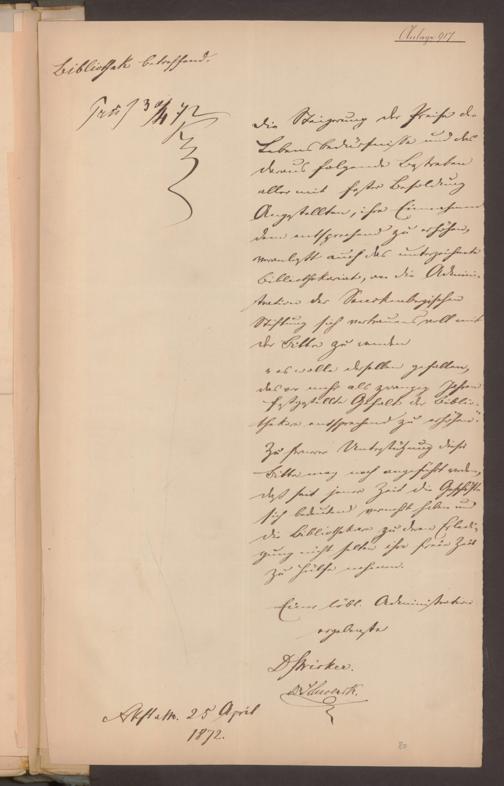 Anlage 917
Bibliothek betreffend.
30/4 72
Die Steigerung der Preise der
Lebensbedürfnisse und das
daraus folgende Bestreben
aller mit fester Besoldung
Angestellten, ihre Einnahmen
dem entsprechend zu erhöhen,
veranlaßt auch das unterzeichnete
Bibliothekariat, an die Admini-
stration der Senckenbergischen
Stiftung sich vertrauensvoll mit
der Bitte zu wenden
es wolle derselben gefallen,
das vor mehr als zwanzig Jahren
festgestellte Gehalt der Biblio-
thekare entsprechend zu erhöhen.
Zu Unterstützung dieser
Bitte mag noch angeführt werden,
daß seit jener Zeit die Geschäfte
sich bedeutend vermehrt haben und
die Bibliothekare zu deren Erledi-
gung nicht selten ihre freie Zeit
zu Hülfe nehmen.
Einer löbl. Administration
ergebenste
Dr Stricker.
25 April
1872.
80